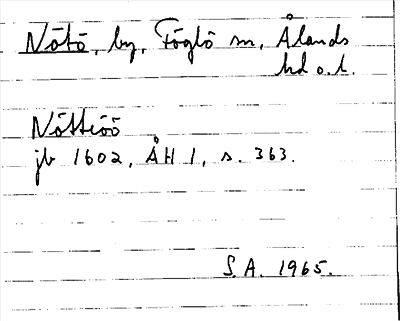 Nötö, by, Föglö sn, Ålands
hd o. l.
Nöttiöö
jb 1602, ÅH 1, s. 363.
S.A. 1965.